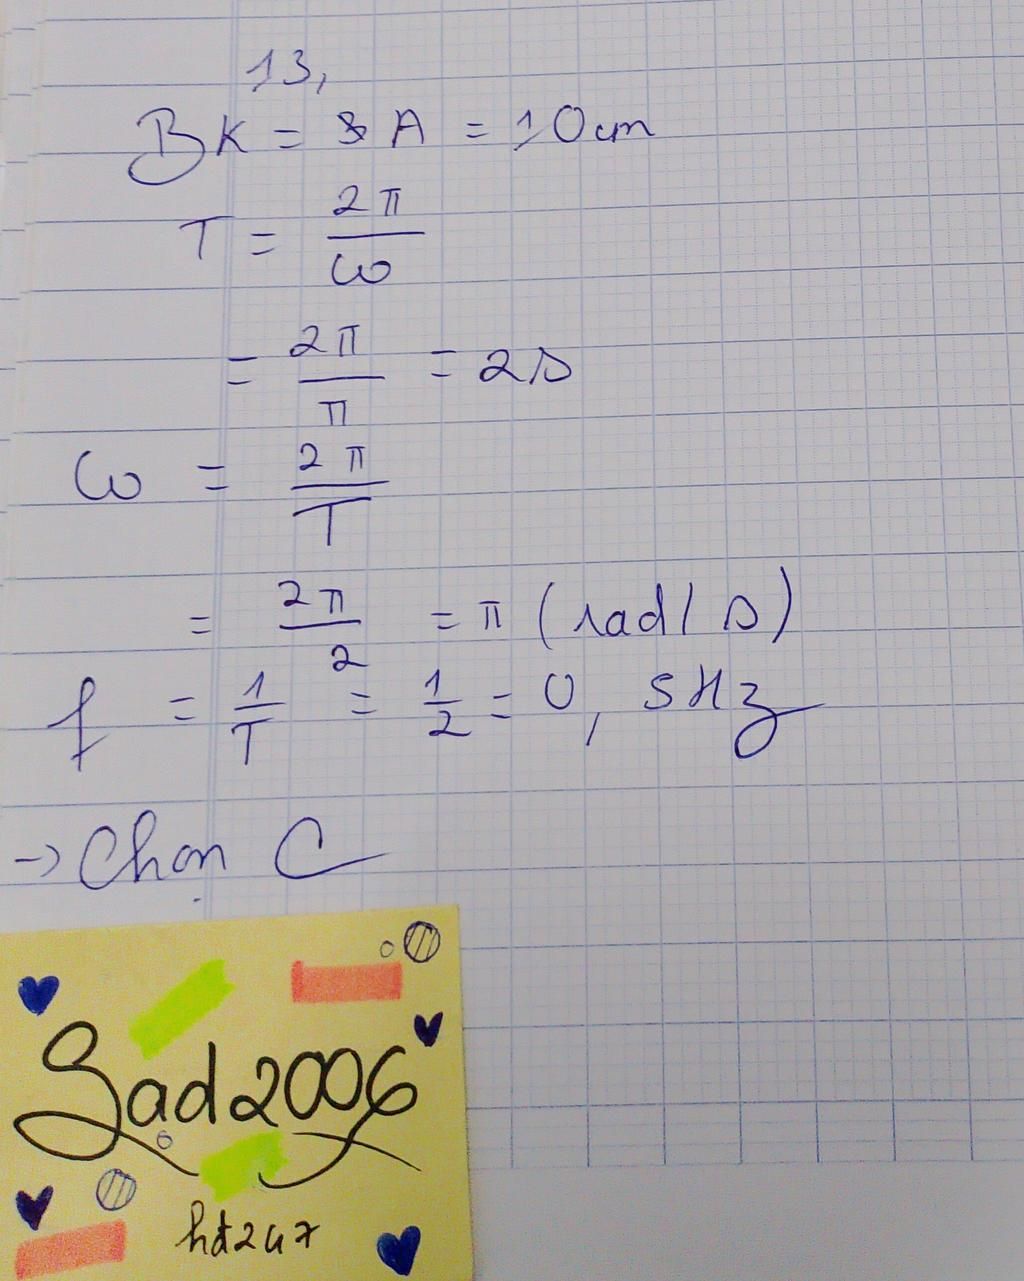 13,
BK = A = 10cm
T = 2π/ω
= 2π/π = 2s
ω = 2π/T
= 2π/2 = π (rad/s)
f = 1/T = 1/2 = 0,5Hz
→ Chọn C
Sad2006
hd247